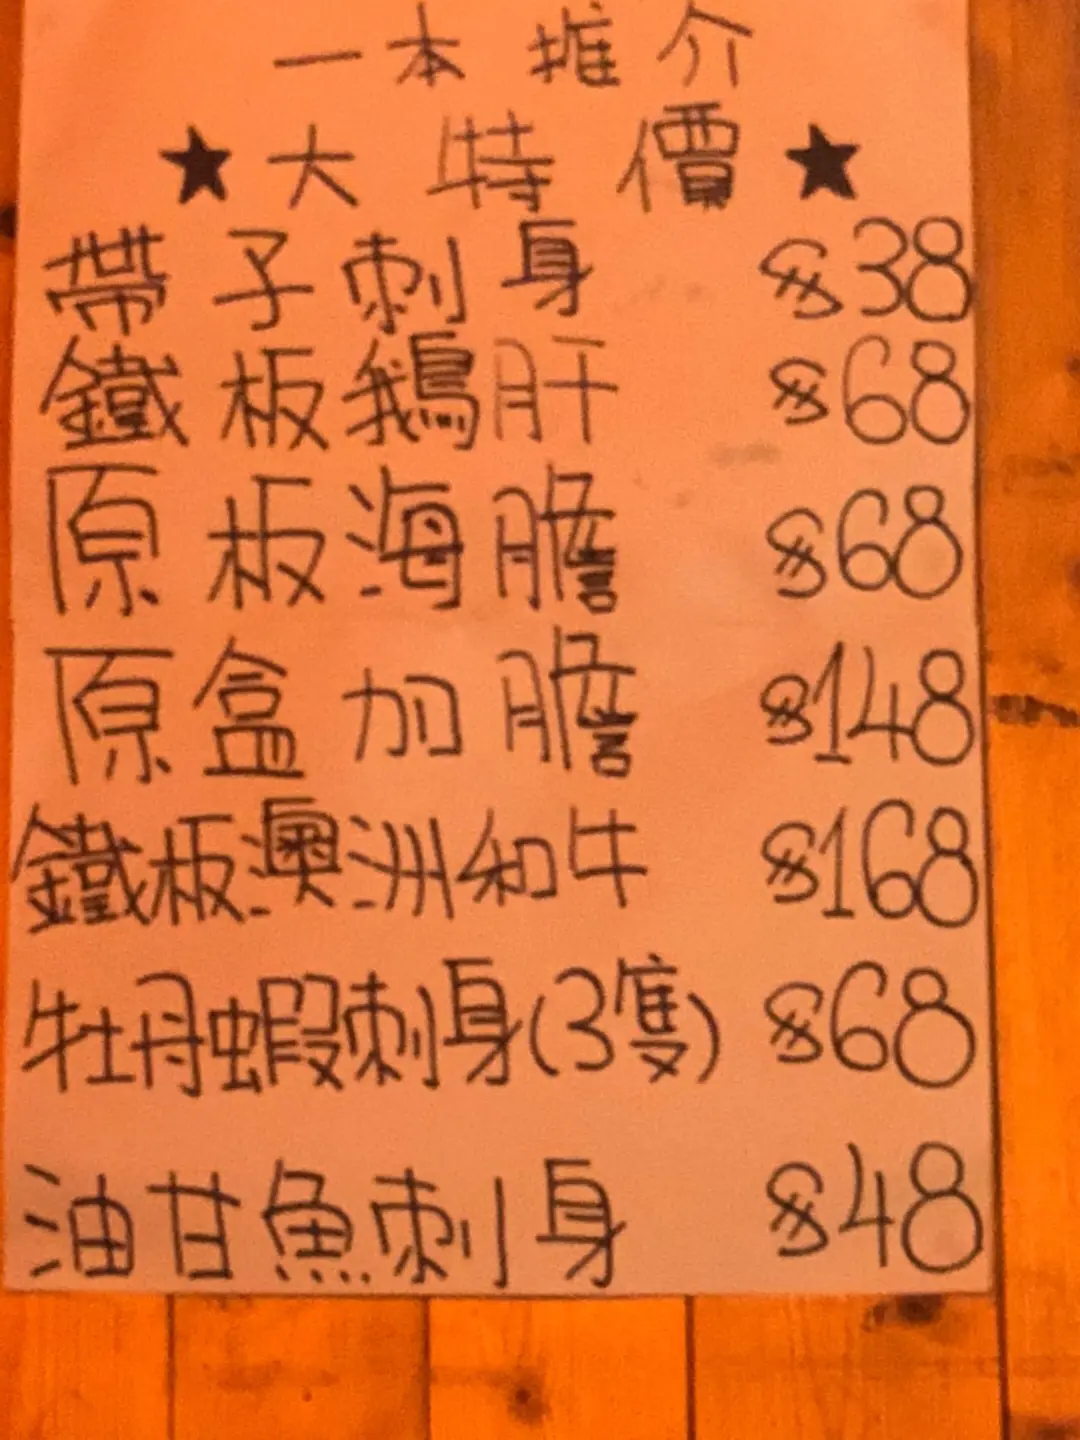 一本推介
★大特價★
帶子刺身 $38
鐵板鵝肝 $68
原板海膽 $68
原盒加膽 $148
鐵板澳洲和牛 $168
牡丹蝦刺身(3隻) $68
油甘魚刺身 $48